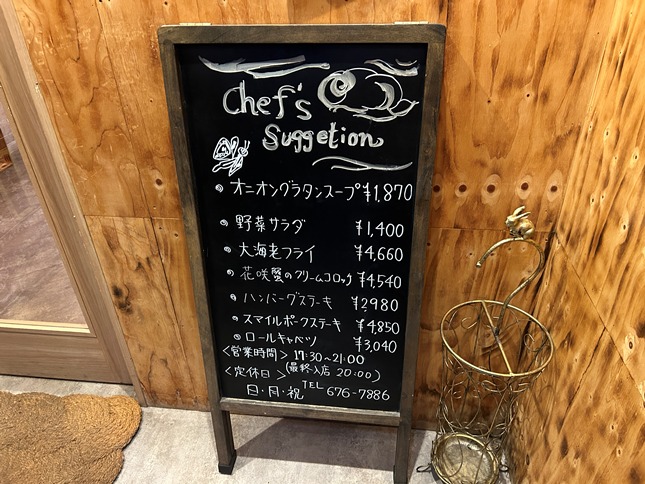 Chef's
Suggetion
オニオングラタンスープ ¥1,870
野菜サラダ ¥1,400
大海老フライ ¥4,660
花咲蟹のクリームコロッケ ¥4,540
ハンバーグステーキ ¥2980
スマイルポークステーキ ¥4,850
ロールキャベツ ¥3,040
<営業時間> 17:30~21:00
(最終入店 20:00)
<定休日> TEL 676-7886
日・月・祝